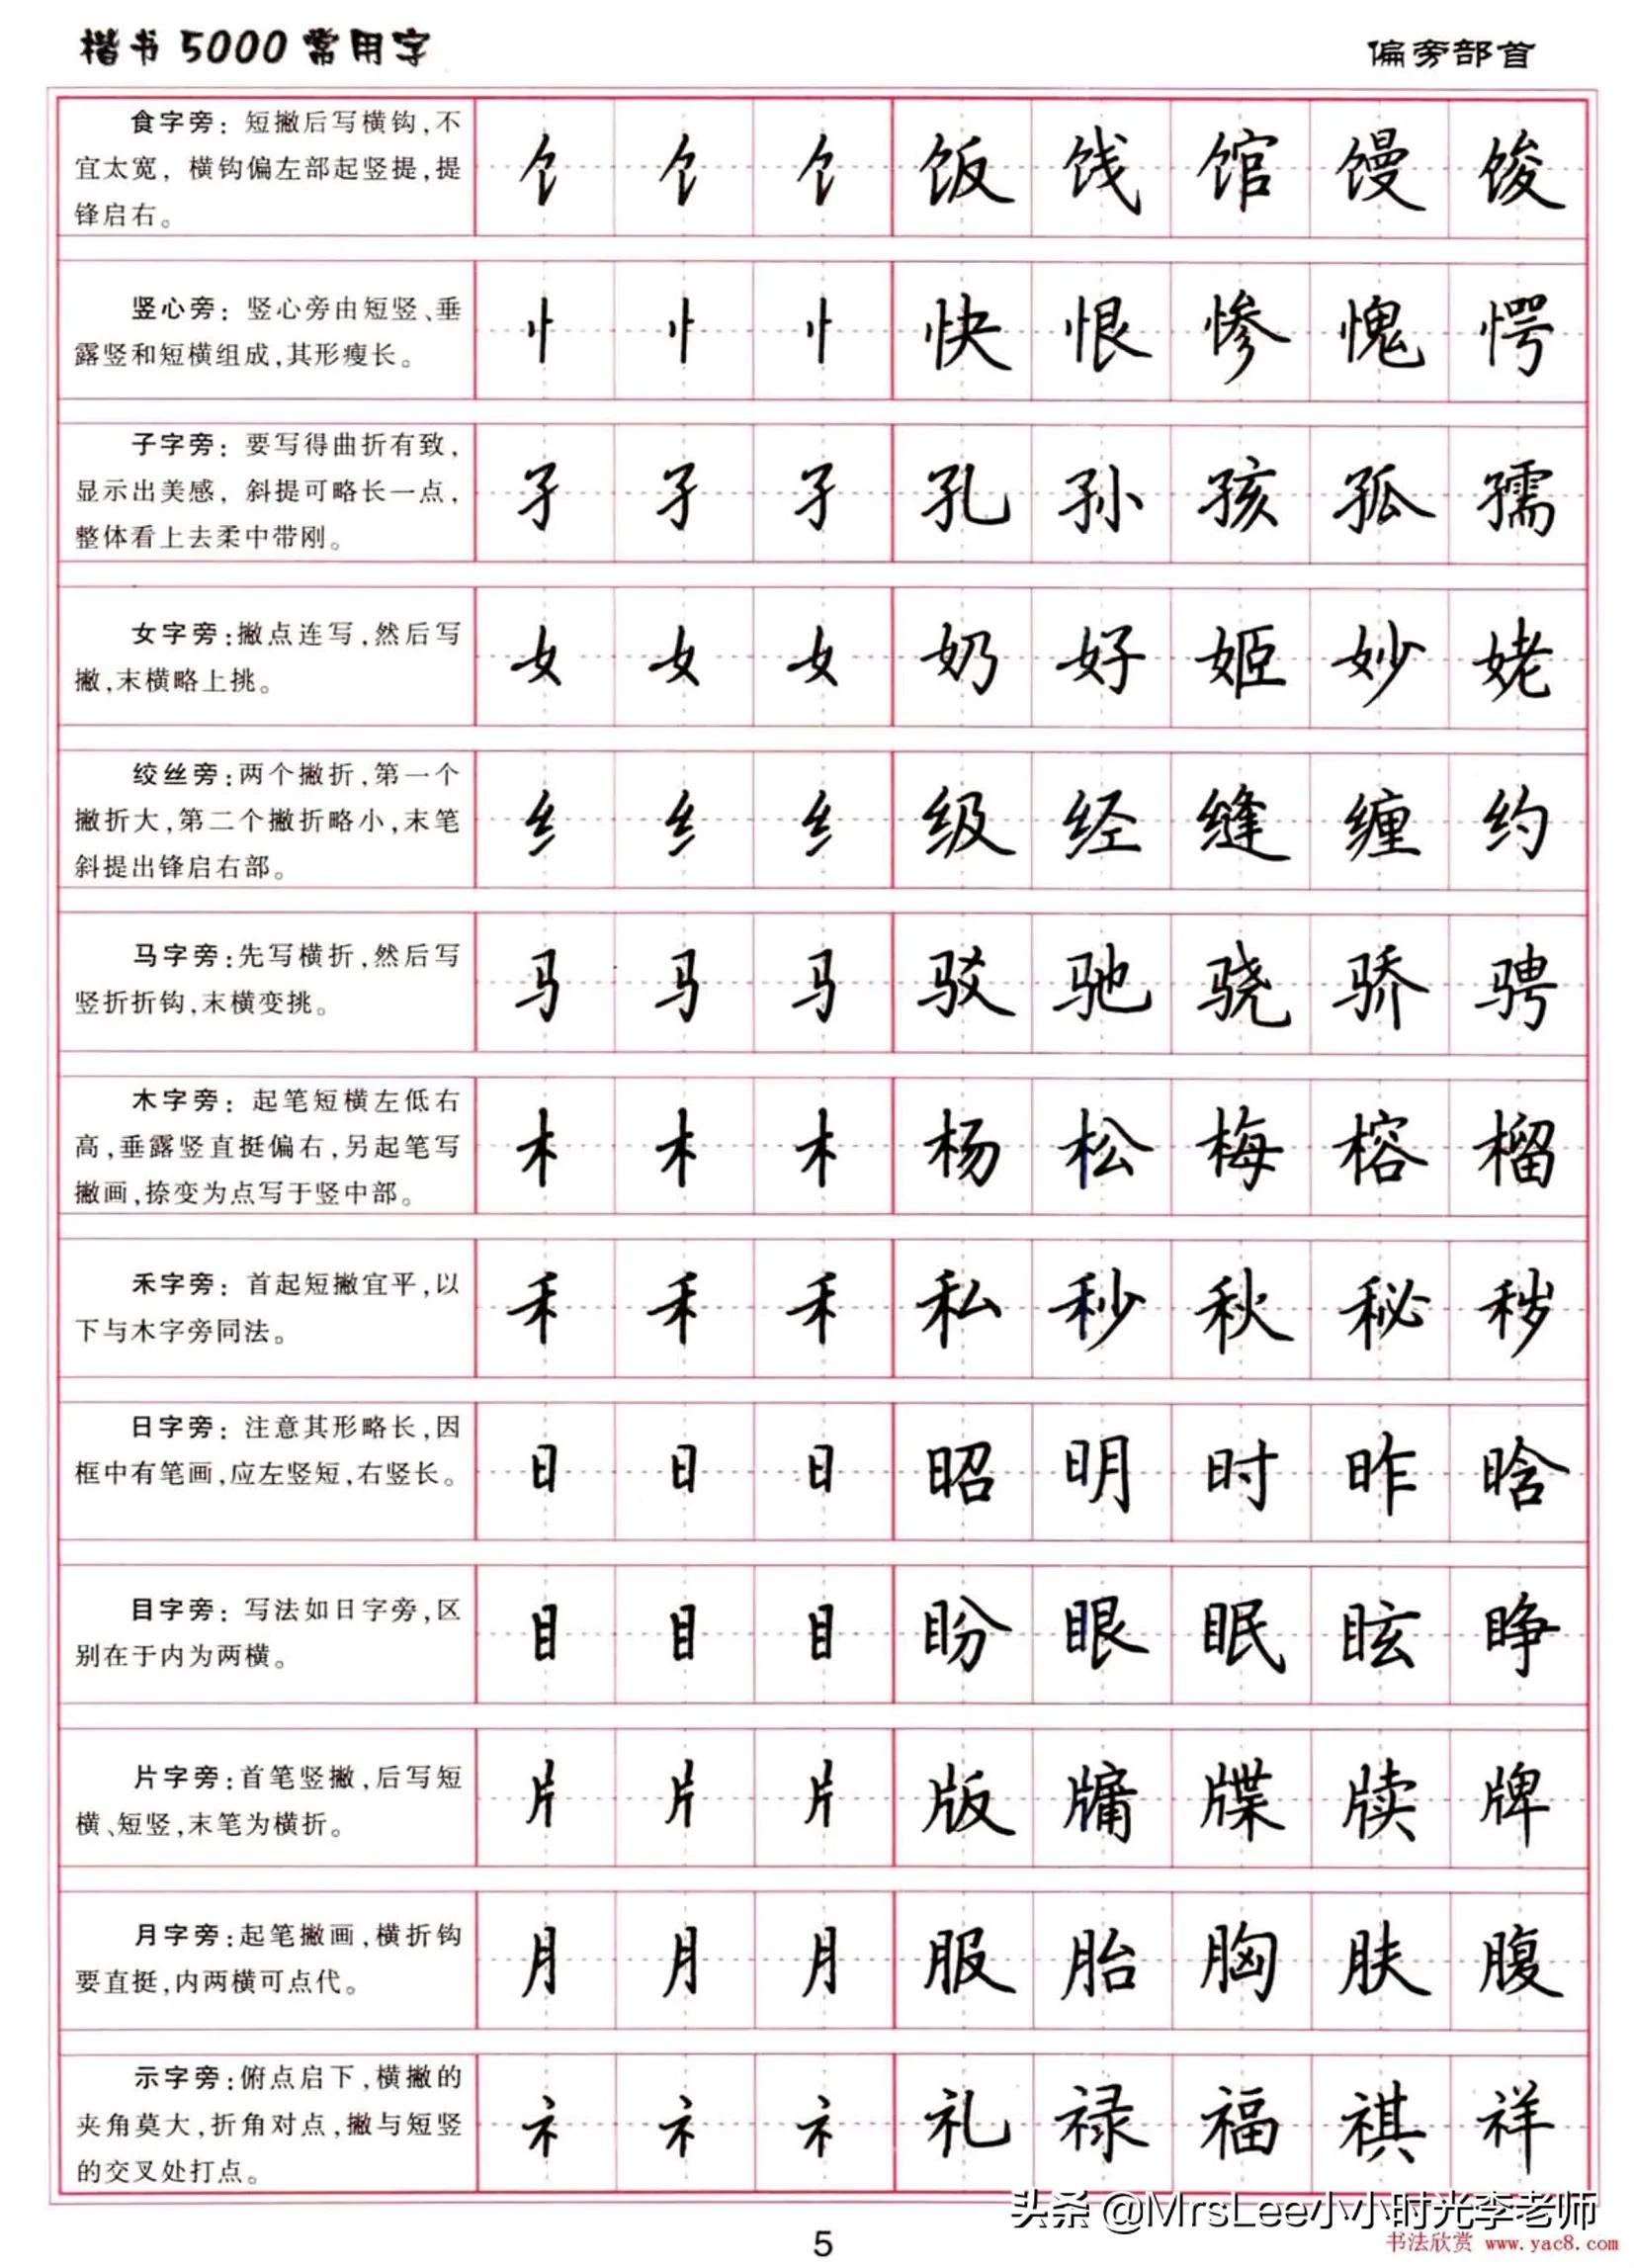 楷书 5000 常用字
偏旁部首
食字旁：短撇后写横钩,不
宜太宽，横钩偏左部起竖提,提
锋启右。
饣 饣 饣 饭 饯 馆 馒 馂
竖心旁：竖心旁由短竖、垂
露竖和短横组成,其形瘦长。
忄 忄 忄 快 恨 惨 愧 愕
子字旁：要写得曲折有致，
显示出美感，斜提可略长一点，
整体看上去柔中带刚。
孑 孑 孑 孔 孙 孩 孤 孺
女字旁:撇点连写,然后写
撇,末横略上挑。
女 女 女 奶 好 姬 妙 姥
绞丝旁:两个撇折,第一个
撇折大,第二个撇折略小,末笔
斜提出锋启右部。
纟 纟 纟 级 经 缝 缠 约
马字旁:先写横折,然后写
竖折折钩,末横变挑。
马 马 马 驳 驰 骁 骄 骋
木字旁：起笔短横左低右
高,垂露竖直挺偏右,另起笔写
撇画,捺变为点写于竖中部。
木 木 木 杨 松 梅 榕 榴
禾字旁：首起短撇宜平,以
下与木字旁同法。
禾 禾 禾 私 秒 秋 秘 秽
日字旁：注意其形略长,因
框中有笔画,应左竖短,右竖长。
日 日 日 昭 明 时 昨 晗
目字旁：写法如日字旁,区
别在于内为两横。
目 目 目 盼 眼 眠 眩 睁
片字旁:首笔竖撇,后写短
横、短竖,末笔为横折。
片 片 片 版 牗 牒 牍 牌
月字旁:起笔撇画,横折钩
要直挺,内两横可点代。
月 月 月 服 胎 胸 肤 腹
示字旁:俯点启下,横撇的
夹角莫大,折角对点,撇与短竖
的交叉处打点。
礻 礻 礻 礼 禄 福 祺 祥
头条 @MrsLee小小时光李老师
5
书法欣赏 www.yac8.com